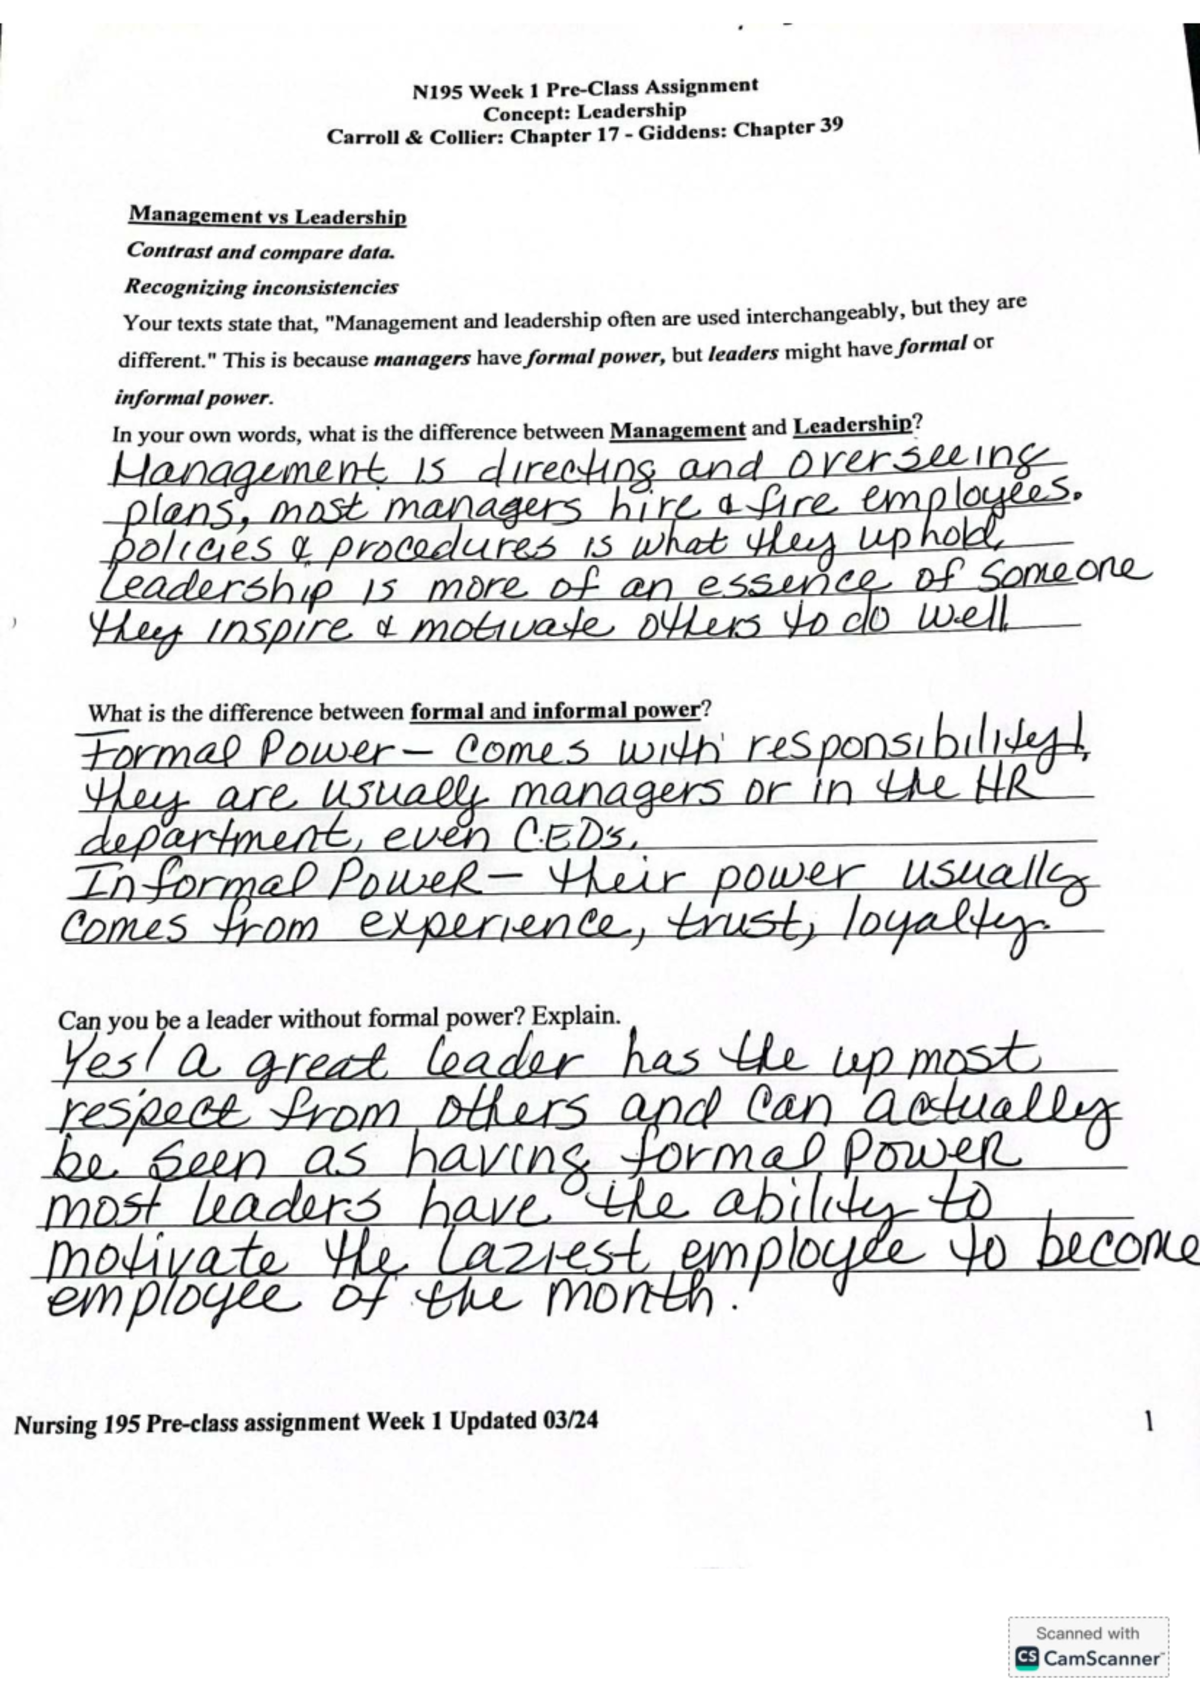 N195 Week 1 Pre-Class Assignment
Concept: Leadership
Carroll & Collier: Chapter 17 - Giddens: Chapter 39
Management vs Leadership
Contrast and compare data.
Recognizing inconsistencies
Your texts state that, "Management and leadership often are used interchangeably, but they are
different." This is because managers have formal power, but leaders might have formal or
informal power.
In your own words, what is the difference between Management and Leadership?
Management is directing and overseeing
plans, most managers hire & fire employees.
policies & procedures is what they uphold.
Leadership is more of an essence of someone
they inspire & motivate others to do well.
What is the difference between formal and informal power?
Formal Power - comes with responsibility,
they are usually managers or in the HR
department, even CEOs.
Informal Power - their power usually
comes from experience, trust, loyalty.
Can you be a leader without formal power? Explain.
Yes! A great leader has the upmost
respect from others and can actually
be seen as having formal power
most leaders have the ability to
motivate the laziest employee to become
employee of the month.
Nursing 195 Pre-class assignment Week 1 Updated 03/24
1
Scanned with
CS CamScanner